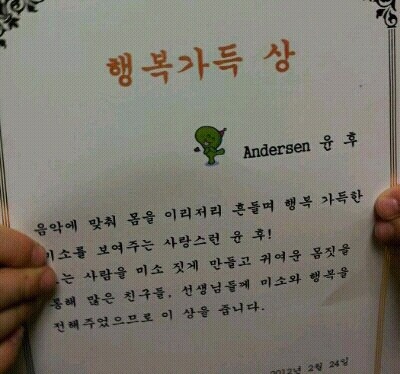 행복가득 상
Andersen 윤 후
음악에 맞춰 몸을 이리저리 흔들며 행복 가득한
미소를 보여주는 사랑스런 윤 후!
는 사람을 미소 짓게 만들고 귀여운 몸짓을
통해 많은 친구들, 선생님들께 미소와 행복을
전해주었으므로 이 상을 줍니다.
2012년 2월 24일